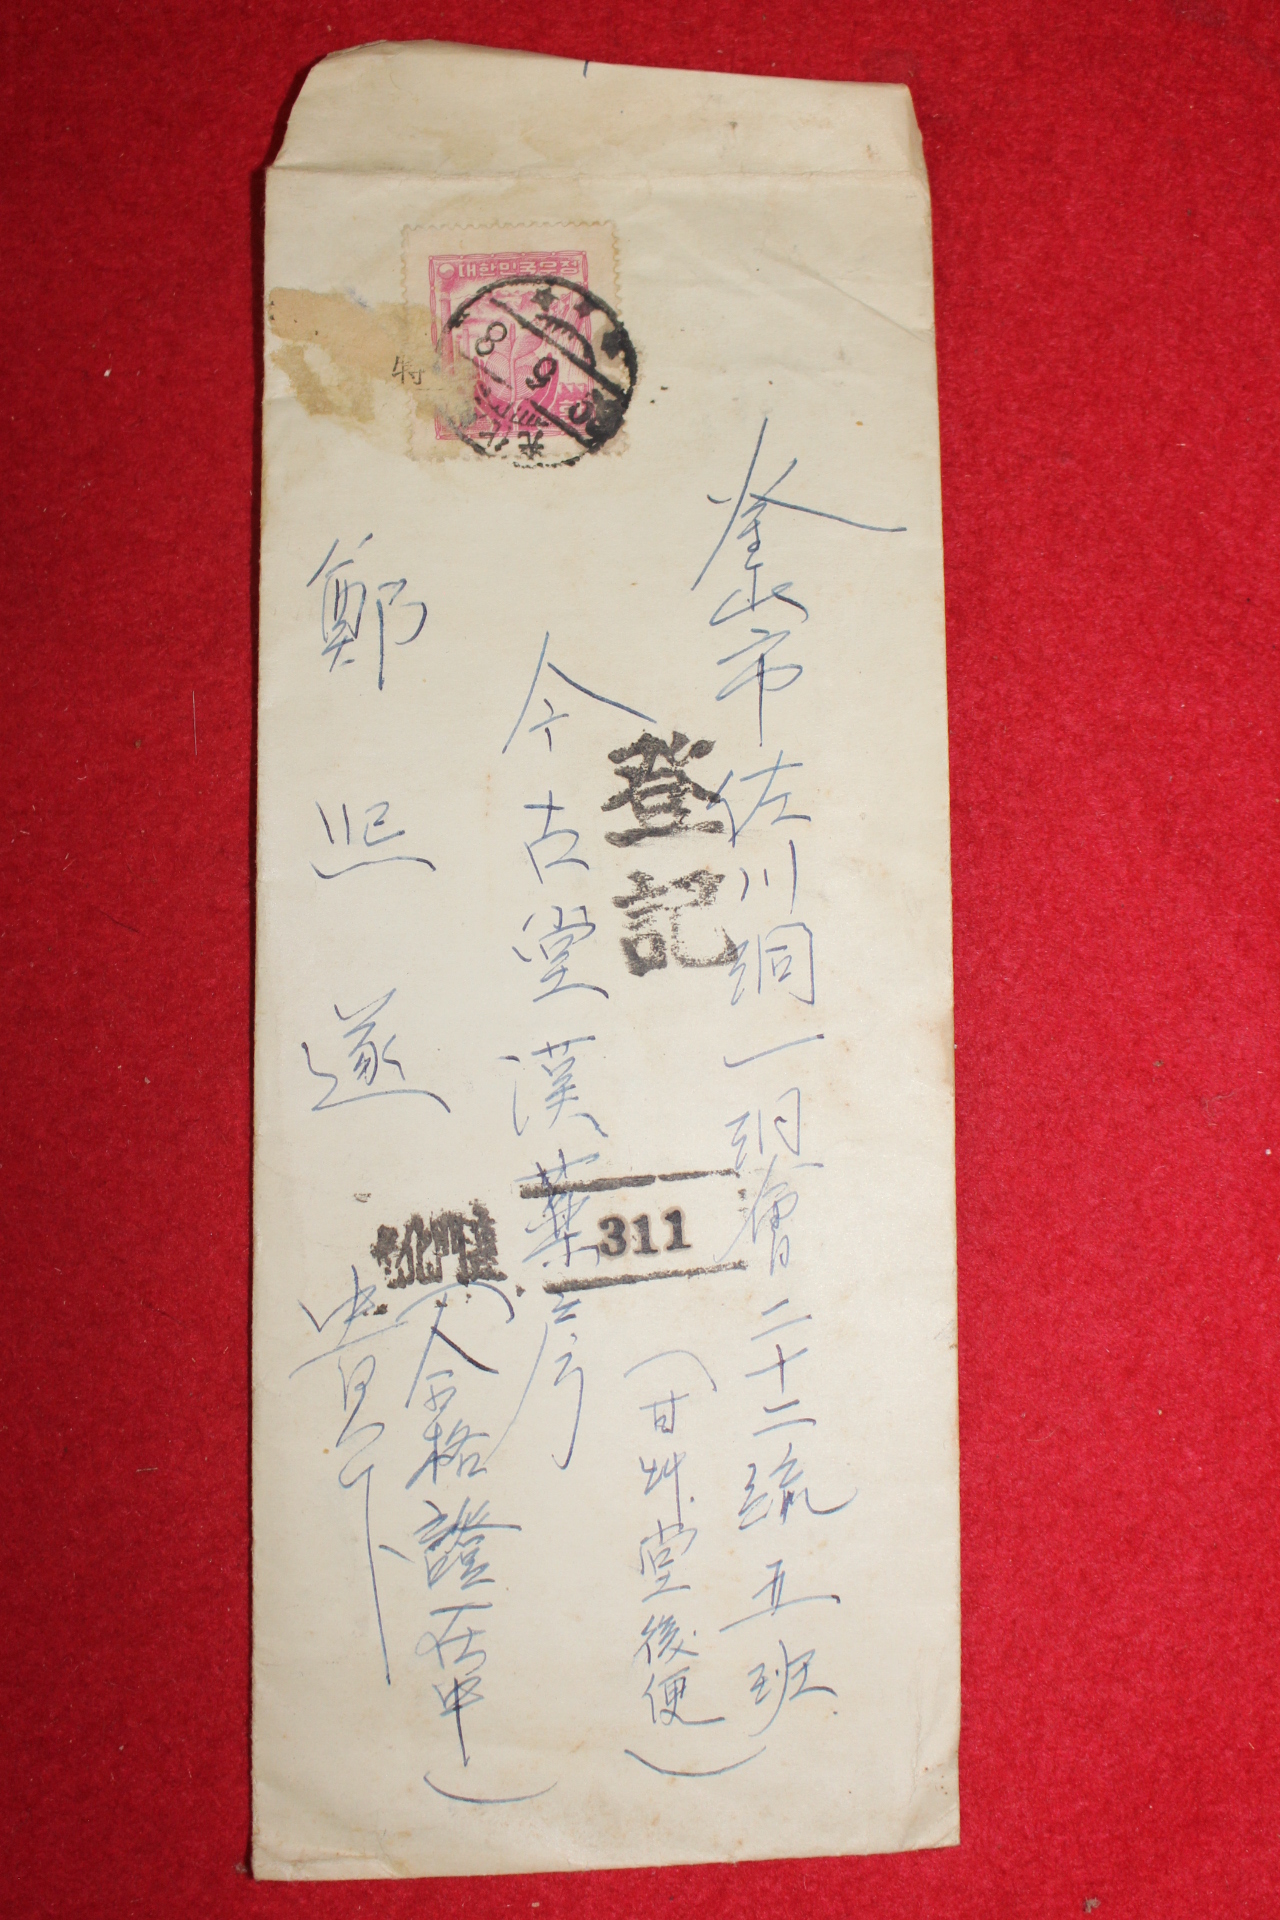 대한민국우정
釜山市佐川洞一洞會二十二統五班
(甘艸堂後便)
登記
今古堂漢藥房
311
光化門
(合格證在中)
鄭熙遂 貴下
特
8 5 20